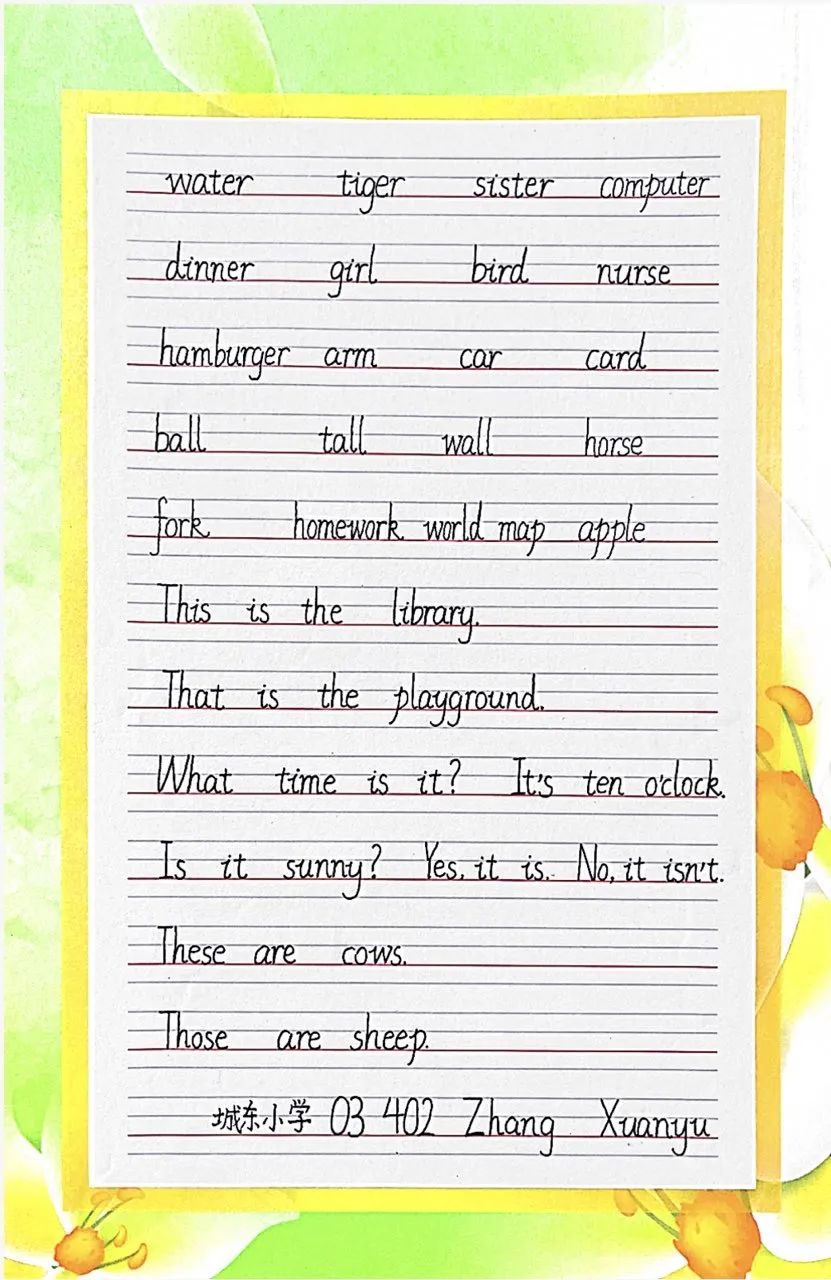 water tiger sister computer
dinner girl bird nurse
hamburger arm car card
ball tall wall horse
fork homework world map apple
This is the library.
That is the playground.
What time is it? It's ten o'clock.
Is it sunny? Yes, it is. No, it isn't.
These are cows.
Those are sheep.
城东小学 03 402 Zhang Xuanyu